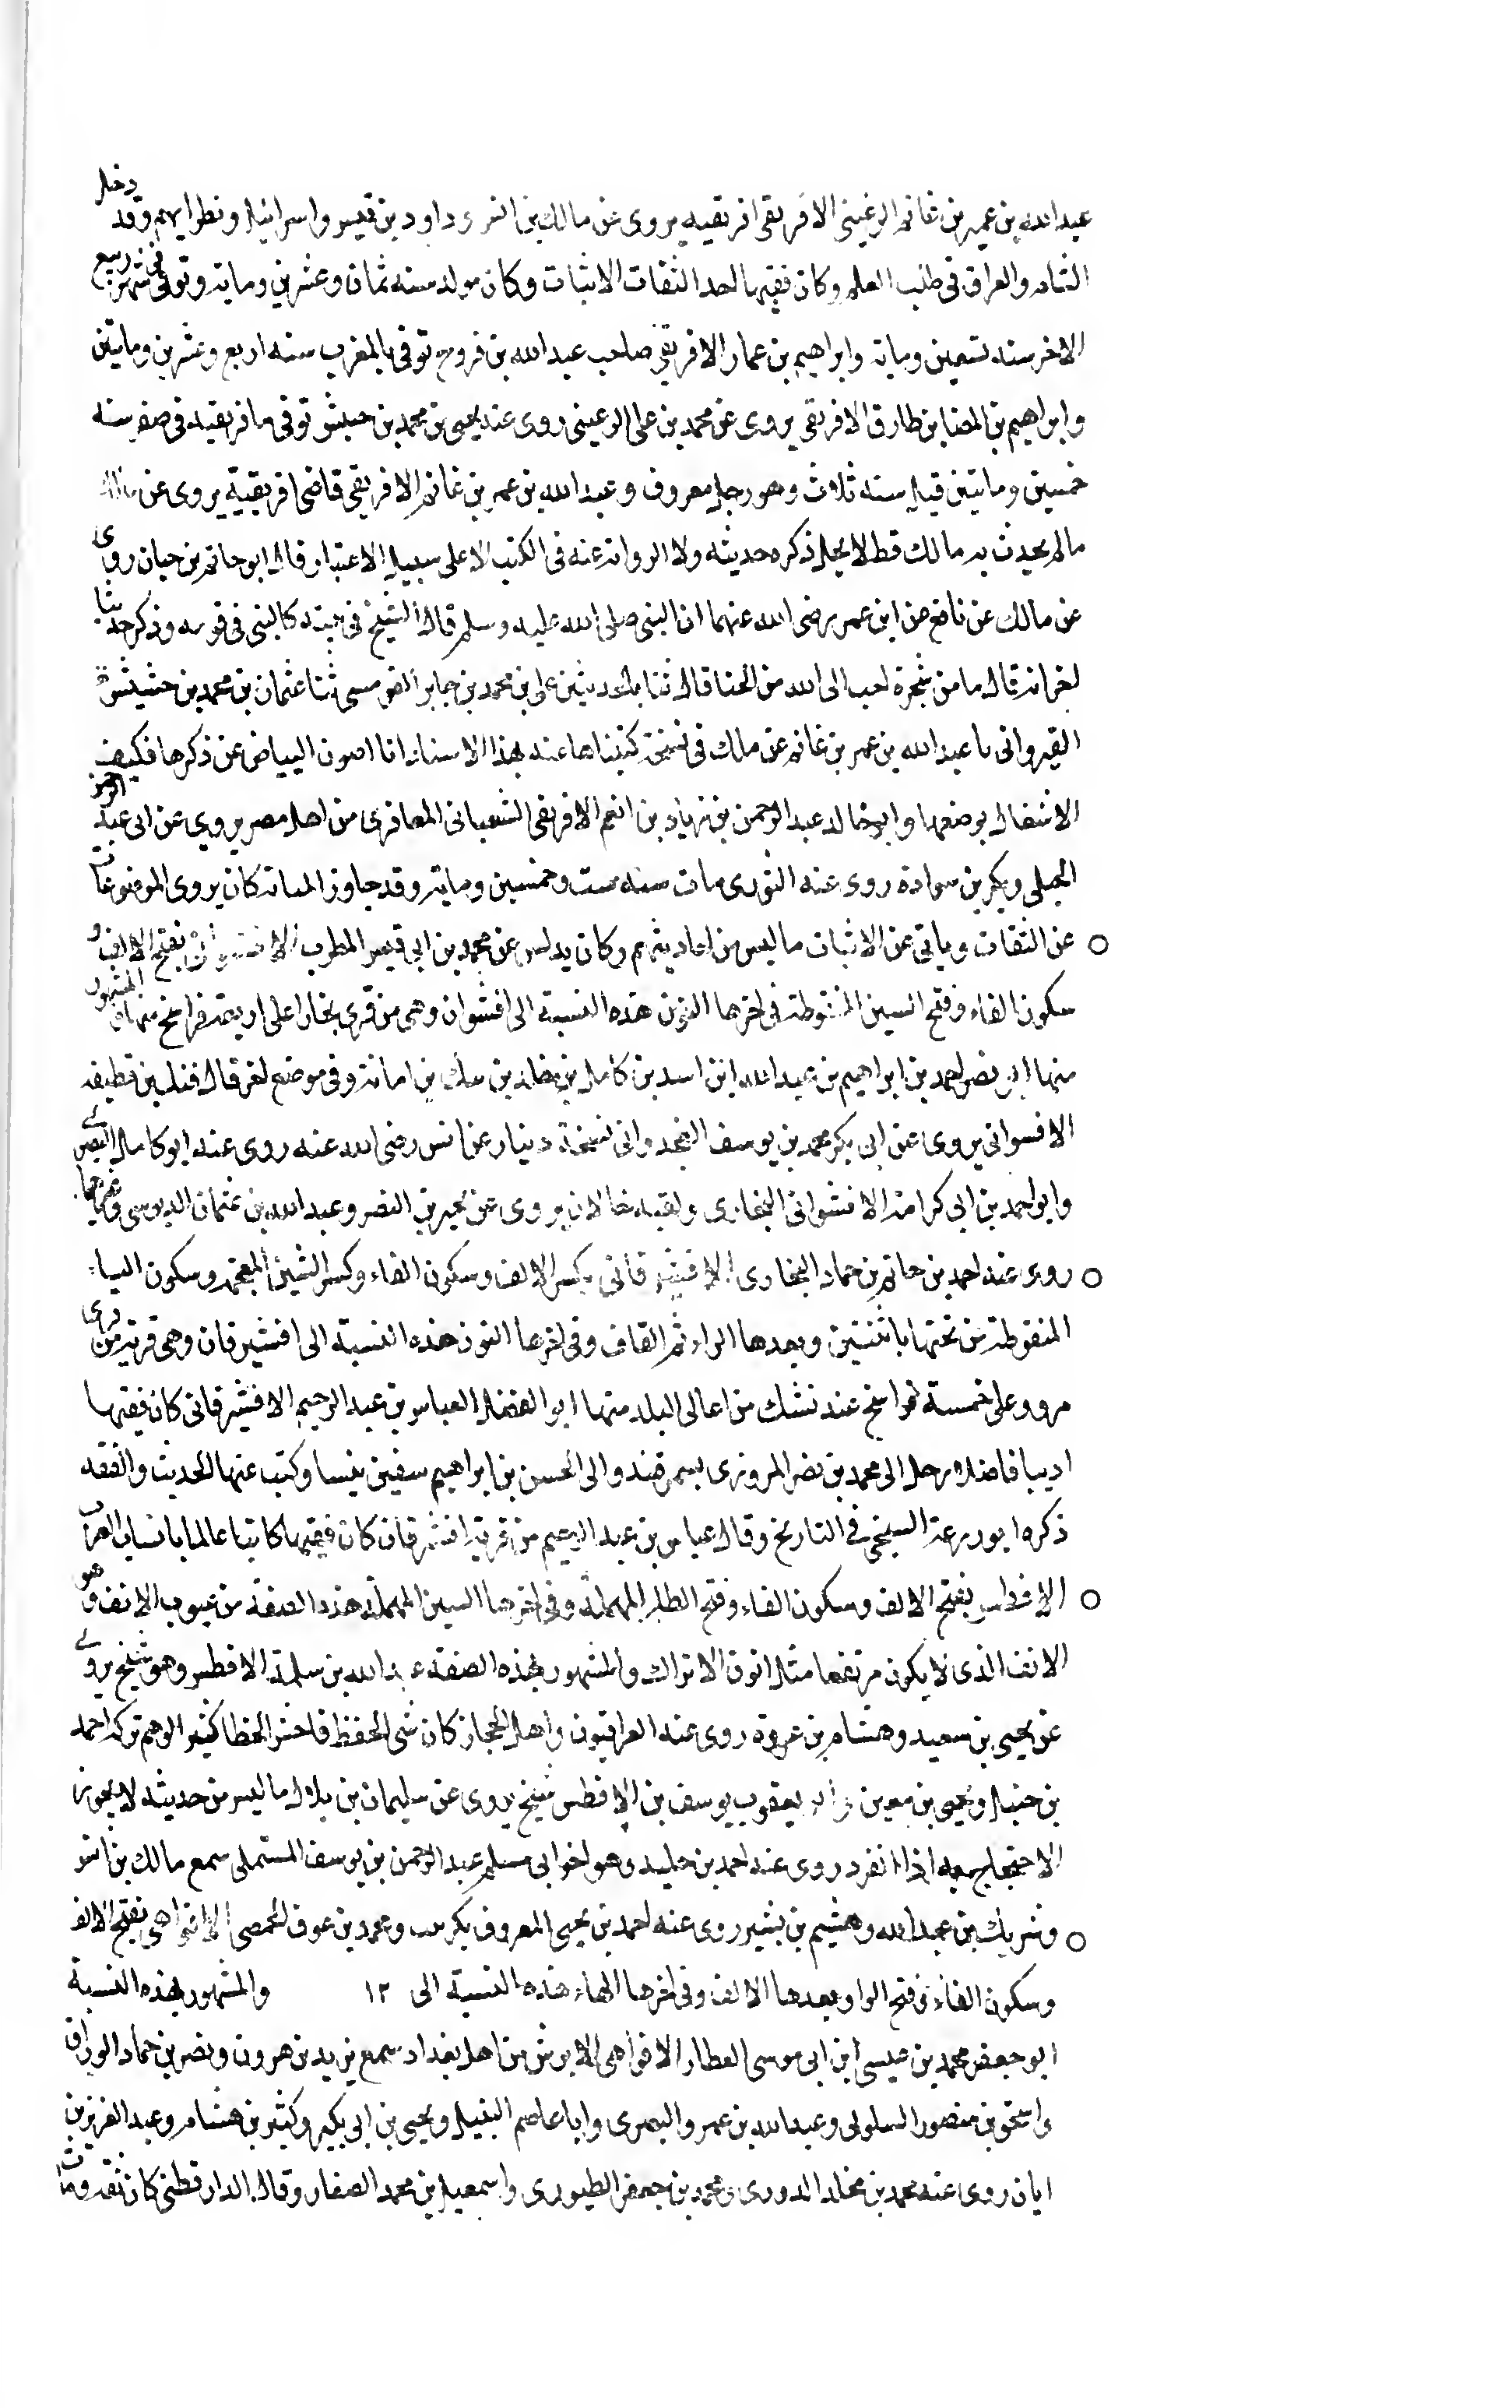 عبد الله بن عمير بن غانم الرعيني الافريقي افريقيه يروى عن مالك بن انس وداود بن قيس واسرائيل ونظرايهم وقد دخل
الشام والعراق فى طلب العلم وكان فقيها احد الثقات الاثبات وكان مولده سنه ثمان وعشرين وماية وتوفى فى شهر ربيع
الاخر سنه تسعين وماية وابراهيم بن عمار الافريقى صاحب عبد الله بن فروخ توفى بالمغرب سنه اربع وعشرين ومايتين
وابراهيم بن المضا بن طارق الافريقى يروى عن محمد بن على الرعينى روى عنه يحيى بن محمد بن حبيش توفى بافريقيه فى صفر سنه
خمسين ومايتين قيل سنه ثلاث وهو رجل معروف وعبد الله بن عمر بن غانم الافريقى قاضى افريقية يروى عن مالك
مالم يحدث به مالك قط لا يحل ذكره حديثه ولا الرواية عنه فى الكتب الا على سبيل الاعتبار قال ابو حاتم بن حبان روى
عن مالك عن نافع عن ابن عمر رضى الله عنهما ان النبى صلى الله عليه وسلم قال الشيخ فى بيته كالنبى فى قومه وذكر حديثا
اخر انه قال ما من شجرة احب الى الله من الحنا قال ثنا بالحديثين على بن محمد بن حاتم القومسى ثنا عثمان بن محمد بن حشيش
القيروانى نا عبد الله بن عمر بن غانم عن ملك فى نسخة كتبناها عنه بهذا الاسناد انا اصون البياض عن ذكرها فكيف
الاشتغال بوضعها وابو خالد عبد الرحمن بن زياد بن انعم الافريقى الشعبانى المعافرى من اهل مصر يروى عن ابى عبد الرحمن
الحبلى وبكر بن سوادة روى عنه الثورى مات سنه ست وخمسين وماية وقد جاوز الماية كان يروى الموضوعات
عن الثقات وياتى عن الاثبات ما ليس من احاديثهم وكان يدلس عن محمد بن ابى قيس المطرب الافشوانى بفتح الالف و
سكون الفاء وفتح الشين المنقوطة فى اخرها النون هذه النسبة الى افشوان وهى من قرى بخارا على اربعة فراسخ منها والمشهور
منها ابو نصر احمد بن ابراهيم بن عبد الله ابن اسد بن كامل بن خالد بن بن امانة وفى موضع اخر قال بن قطيفه
الافسوانى يروى عن ابى بكر محمد بن يوسف النجدوانى نسخة دينار عن انس رضى الله عنه روى عنه ابو كامل البصرى
وابو احمد بن ابى كرامة الافشوانى البخارى ولقبه خالان يروى عن بحير بن النضر وعبد الله بن عثمان الدبوسى وغيرهما
روى عنه احمد بن حاتم بن حماد البخارى الافشيرقانى بكسر الالف وسكون الفاء وكسر الشين المعجمة وسكون الياء
المنقوطة من تحتها باثنتين وبعدها الراء ثم القاف وفى اخرها النون هذه النسبة الى افشيرقان وهى قرية من قرى
مرو وعلى خمسة فراسخ عند نشك من اعالى البلد منها ابو الفضل العباس بن عبد الرحيم الافشيرقانى كان فقيها
اديبا فاضلا رحل الى محمد بن نصر المروزى بسمرقند والى الحسن بن ابراهيم سفين بنسا وكتب عنها الحديث والفقه
ذكره ابو زرعة السنجى فى التاريخ وقال عباس بن عبد الرحيم من قرية افشرقان كان فقيها كاتبا عالما بانساب العرب
الافطس بفتح الالف وسكون الفاء وفتح الطاء المهملة وفى اخرها السين المهملة هذه الصفة من عيوب الانف وهو
الانف الذى لا يكون مرتفعا مثل انوف الاتراك والمشهور بهذه الصفه عبد الله بن سلمة الافطس وهو شيخ يروى
عن يحيى بن سعيد وهشام بن عروة روى عنه العراقيون واهل الحجاز كان سى الحفظ فاحش الخطا كثير الوهم تركه احمد
بن حنبل ويحيى بن معين وابو يعقوب يوسف بن الافطس شيخ يروى عن سليمان بن بلال ما ليس من حديثه لا يجوز
الاحتجاج به اذا انفرد روى عنه احمد بن خليد وهو اخو ابى مسلم عبد الرحمن بن يوسف المستملى سمع مالك بن انس
وشريك بن عبد الله وهشيم بن بشير روى عنه احمد بن يحيى المعروف بكرنب ومحمد بن عوف الحمصى الافواهى بفتح الالف
وسكون الفاء وفتح الواو وبعدها الالف وفى اخرها الهاء هذه النسبة الى ١٢ والمشهور بهذه النسبة
ابو جعفر محمد بن عيسى ابن ابى موسى العطار الافواهى الابرش من اهل بغداد سمع يزيد بن هرون ونصر بن حماد الوراق
واسحق بن منصور السلولى وعبد الله بن عمرو البصرى وابا عاصم النبيل ويحيى بن ابى بكير وكثير بن هشام وعبد العزيز بن
ابان روى عنه محمد بن مخلد الدورى ومحمد بن جعفر الطيورى واسمعيل بن محمد الصفار وقال الدارقطنى كان ثقه ومات